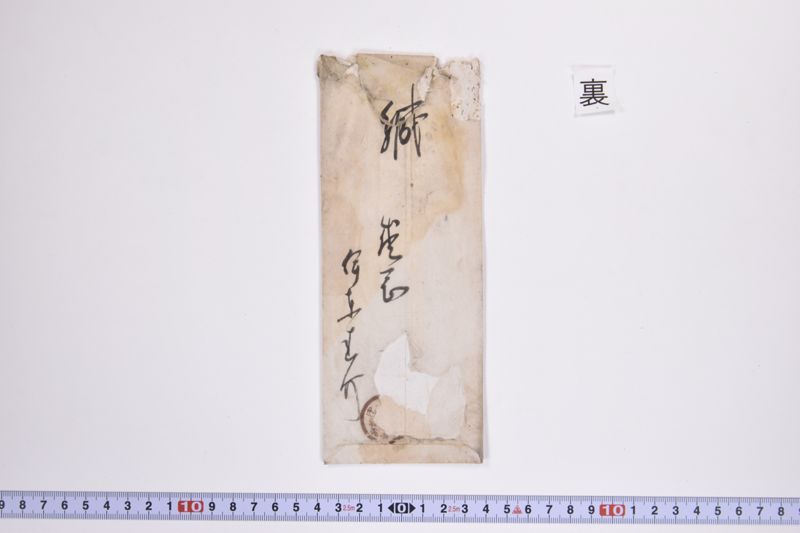 裏
緘
伊東圭介
9 8 7 6 5 4 3 2 1 10 9 8 7 6 5 4 3 2.5m 2 1 0 1 2 2.5m 3 4 5 6 7 8 9 10 1 2 3 4 5 6 7 8 9